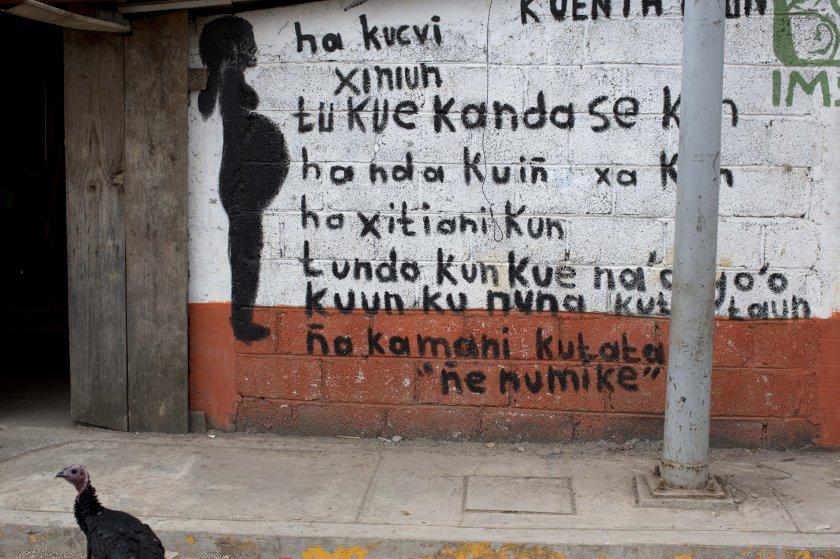 KUENTA
IMS
ha kucvi
xiniun
tu kue kanda se
ha nda kuiñ xa
ha xitioni kun
tundo kun kue
kuun ku nuna
ña kamani kutata
"ñe numike"